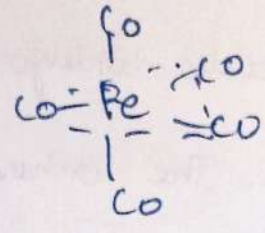 CO
CO
CO Fe CO
CO